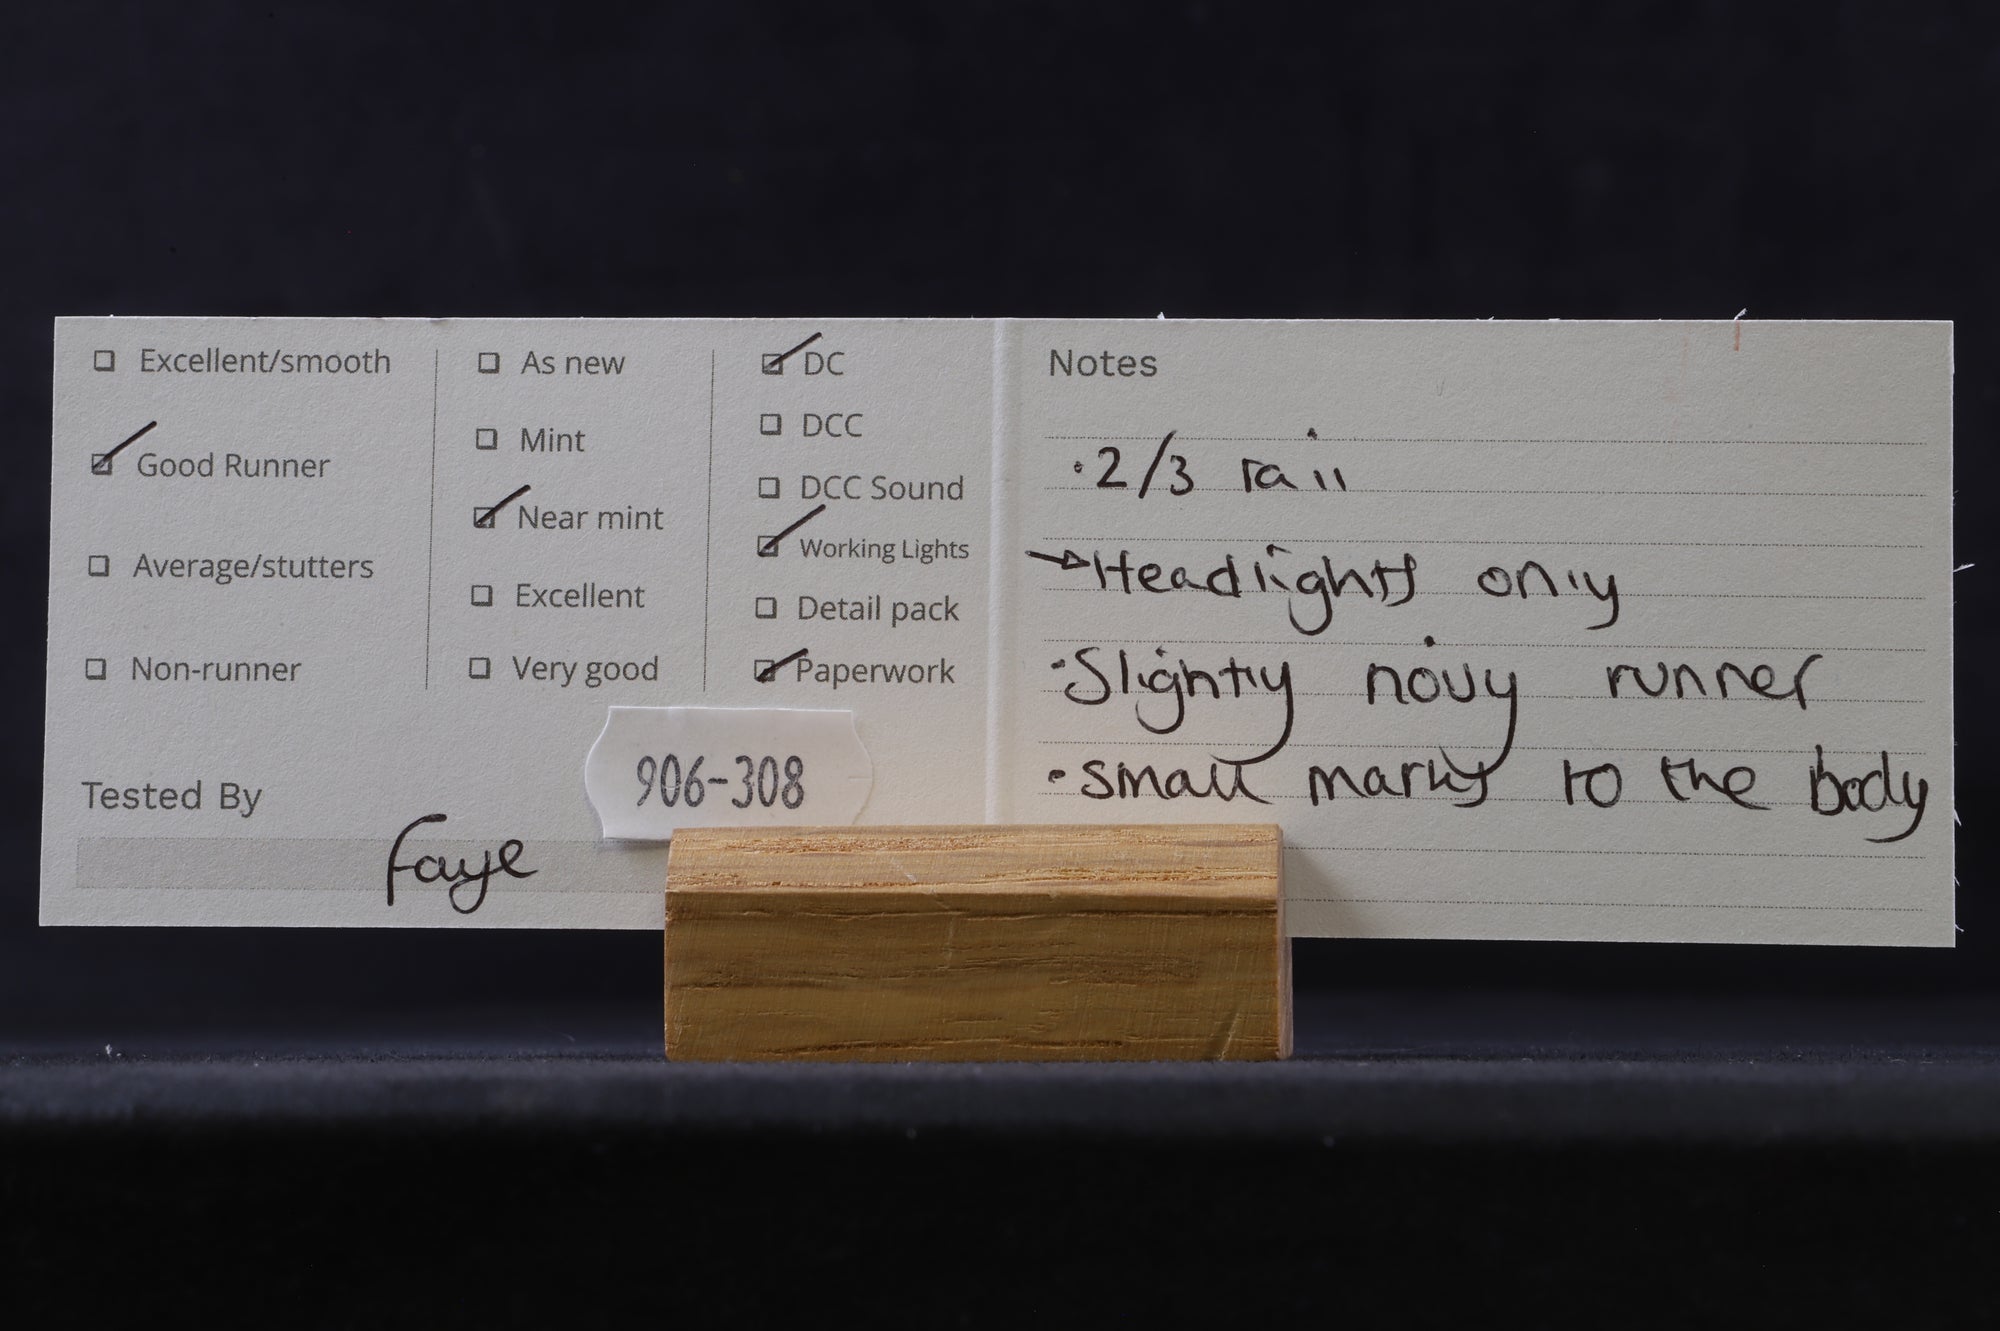 Excellent/smooth
Good Runner
Average/stutters
Non-runner
As new
Mint
Near mint
Excellent
Very good
DC
DCC
DCC Sound
Working Lights
Detail pack
Paperwork
Tested By
Faye
906-308
Notes
·2/3 rail
→Headlights only
·Slightly noisy runner
·small marks to the body